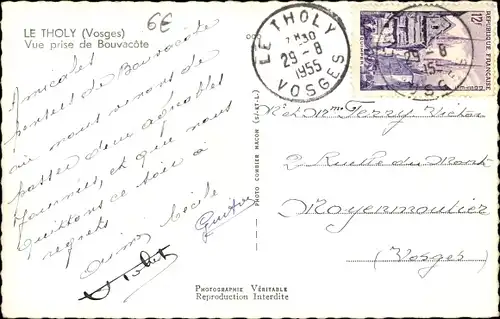 LE THOLY (Vosges)
Vue prise de Bouvacôte
6€
LE THOLY
7H30
29-8
1955
VOSGES
12F
REPUBLIQUE FRANÇAISE
Amicales
pensées de Bouvacôte
où nous venons de
passer deux agréables
journées, et que nous
quittons ce soir à
regrets
Cécile
Gustave
PHOTO COMBIER MACON (S.-ET-L.)
Mr et Mme Ferry Victor
2 Ruelle du Mont
Moyenmoutier
(Vosges)
PHOTOGRAPHIE VÉRITABLE
Reproduction Interdite